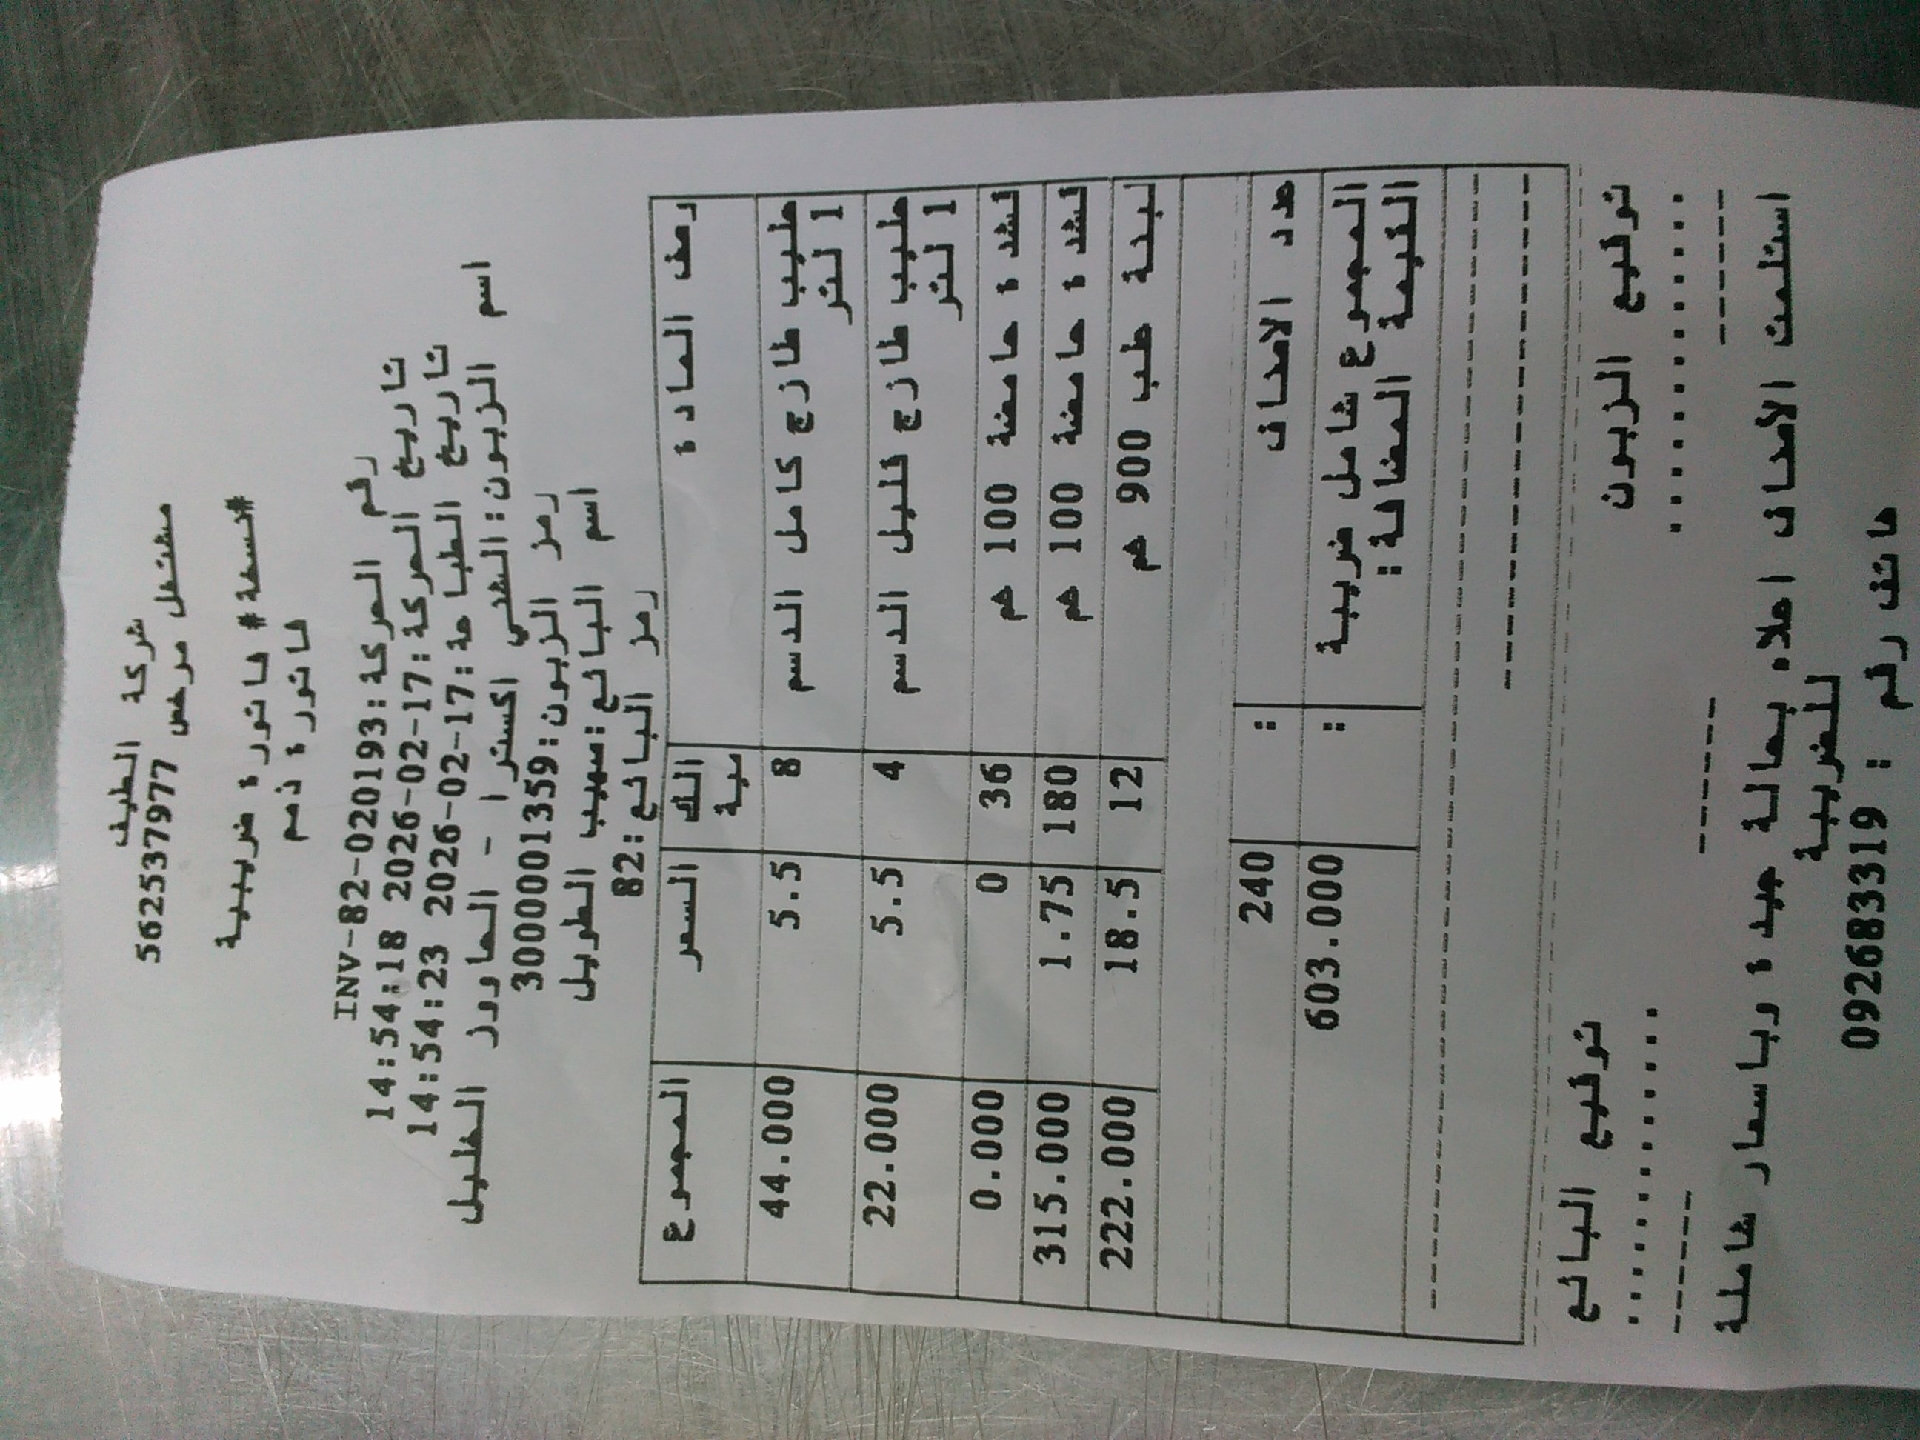 شركة الطيف
مشتغل مرخص 562537977
#نسخة# فاتورة ضريبية
فاتورة ذمم
رقم الحركة:INV-82-020193
تاريخ الحركة:17-02-2026 14:54:18
تاريخ الطباعة:17-02-2026 14:54:23
اسم الزبون:الشني اكسترا - الحاووز الخليل
رمز الزبون:3000001359
اسم البائع:صهيب الطويل
رمز البائع:82
وصف المادة الكمية السعر المجموع
حليب طازج كامل الدسم 1 لتر 8 5.5 44.000
حليب طازج قليل الدسم 1 لتر 4 5.5 22.000
قشدة حامضة 100 غم 36 0 0.000
قشدة حامضة 100 غم 180 1.75 315.000
لبنة طب 900 غم 12 18.5 222.000
عدد الاصناف : 240
المجموع شامل ضريبة القيمة المضافة: : 603.000
توقيع الزبون توقيع البائع
استلمت الاصناف اعلاه بحالة جيدة وباسعار شاملة للضريبة
هاتف رقم : 092683319